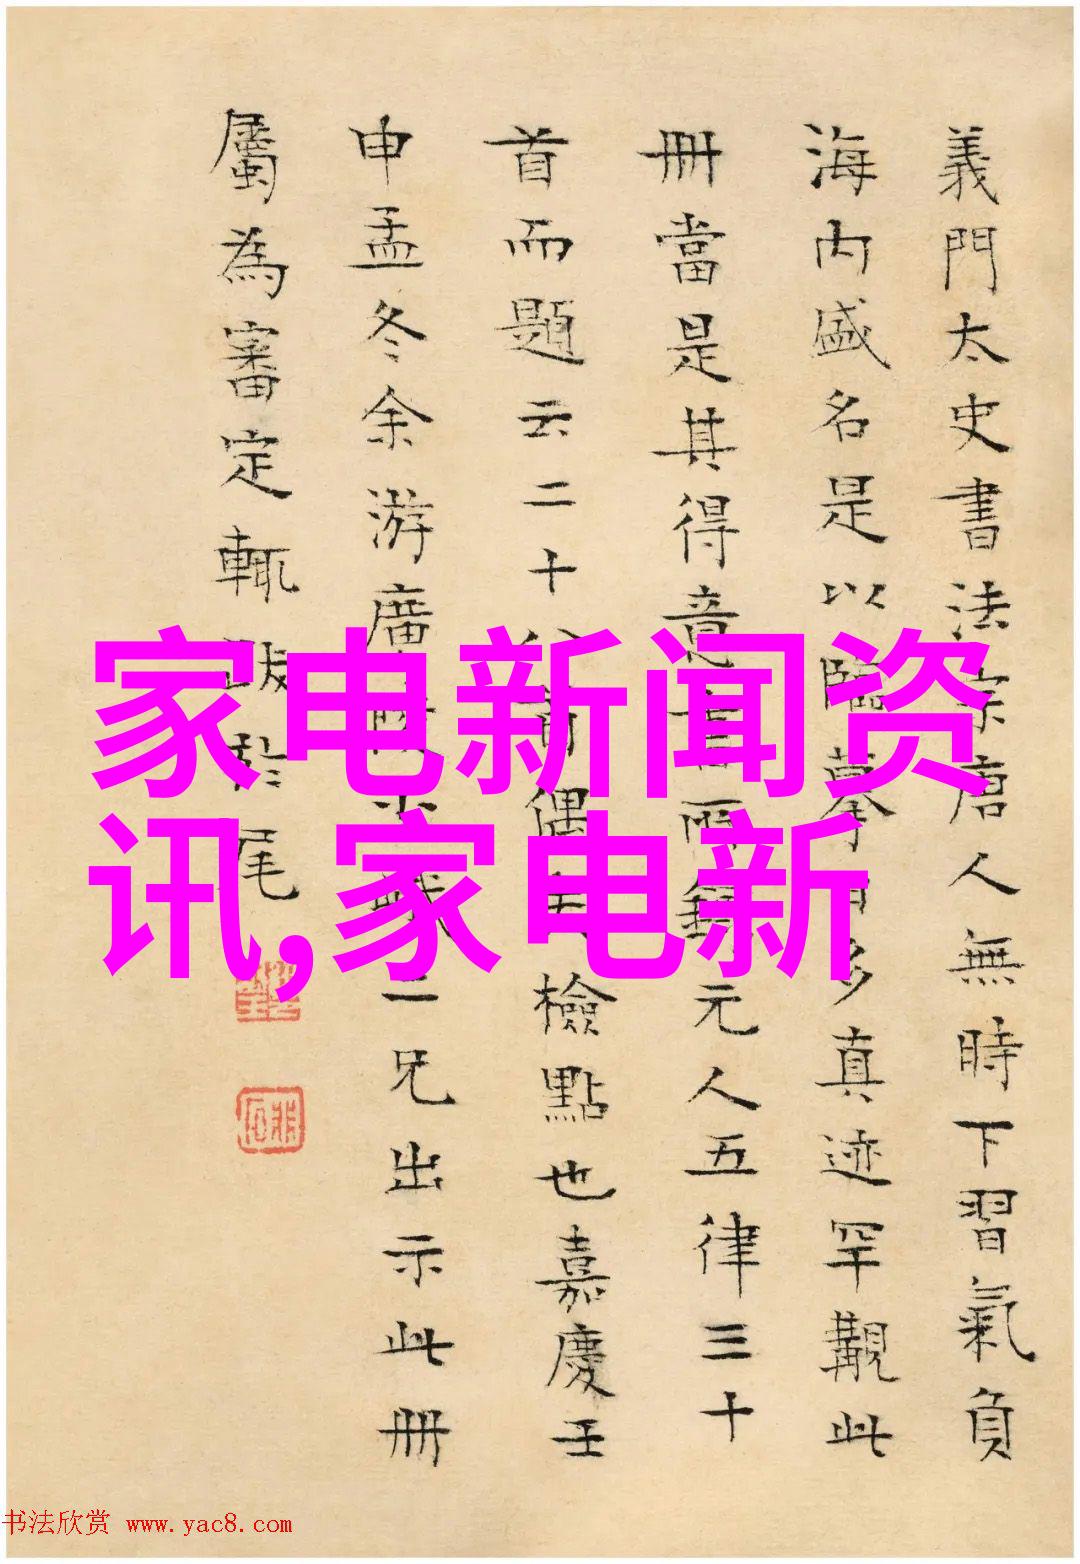 義門太史書法宗唐人無時下習氣負
海内盛名是以臨摹日多真迹罕觀此
冊當是其得意書 兩錄元人五律三十
首而題云二十八首偶失檢點也嘉慶壬
申孟冬余游廣 三兄出示此冊
屬為審定輒跋於尾
家电新闻资
讯,家电新
书法欣赏 www.yac8.com